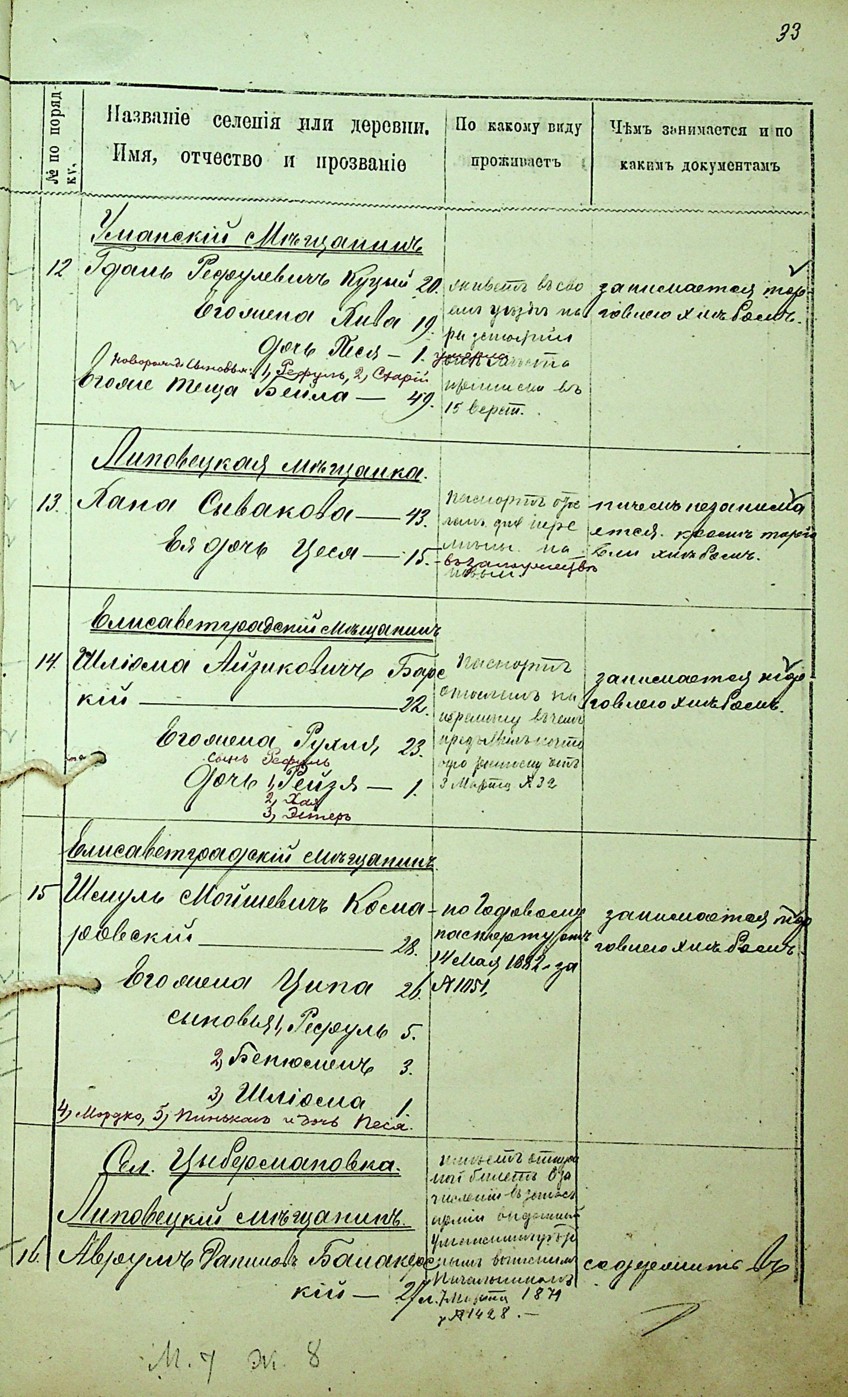 33
№ по поряд-
ку.
Названіе селенія или деревни.
Имя, отчество и прозваніе
По какому виду
проживаетъ
Чѣмъ занимается и по
какимъ документамъ
Уманскій Мѣщанинъ
12 Гданъ Рефулевичъ Куцый 20.
Его жена Хива 19.
дочь Песя — 1.
новорожд. сыновья: 1, Рефуль, 2, Старій
Его же теща Бейла — 49.
живетъ въ сво
емъ уѣздѣ на
мѣста
приписки въ
15 верст.
занимается тор-
говлею хлѣбомъ.
Липовецкая мѣщанка.
13. Хана Сывакова — 43.
Ея дочь Цеся — 15.
въ замужествѣ
Паспортъ
ничемъ незанима
ется. кромѣ торго
вли хлѣбомъ.
Елисаветградскій мѣщанинъ
14. Шліома Айзиковичъ Барс
кій — 22.
Его жена Рухля, 23.
сынъ Рефуль
Дочь 1, Рейзя — 1.
2, Хая
3, Эстеръ
Паспортъ
3 Марта № 32
занимается тор
говлею хлѣбомъ.
Елисаветградскій мѣщанинъ
15 Шмуль Мойшевичъ Кома-
ровскій — 28.
Его жена Ципа 26.
сыновья 1, Рефуль 5.
2, Бенюменъ 3.
3, Шліома 1.
4, Мордко, 5, Пинькасъ и дочь Песя.
по Годовому
паспорту отъ
14 Мая 1882 г. за
№ 1051,
занимается тор
говлею хлѣбомъ.
Сел. Цыбермановка.
Липовецкій мѣщанинъ.
16. Аврумъ Даниловъ Балаклес
кій — 21
численіи въ запасъ
арміи выданный
Уманскимъ
воинскимъ
Начальникомъ
7 Марта 1879
№ 1428. —
содержитъ въ
М. 7 Ж. 8